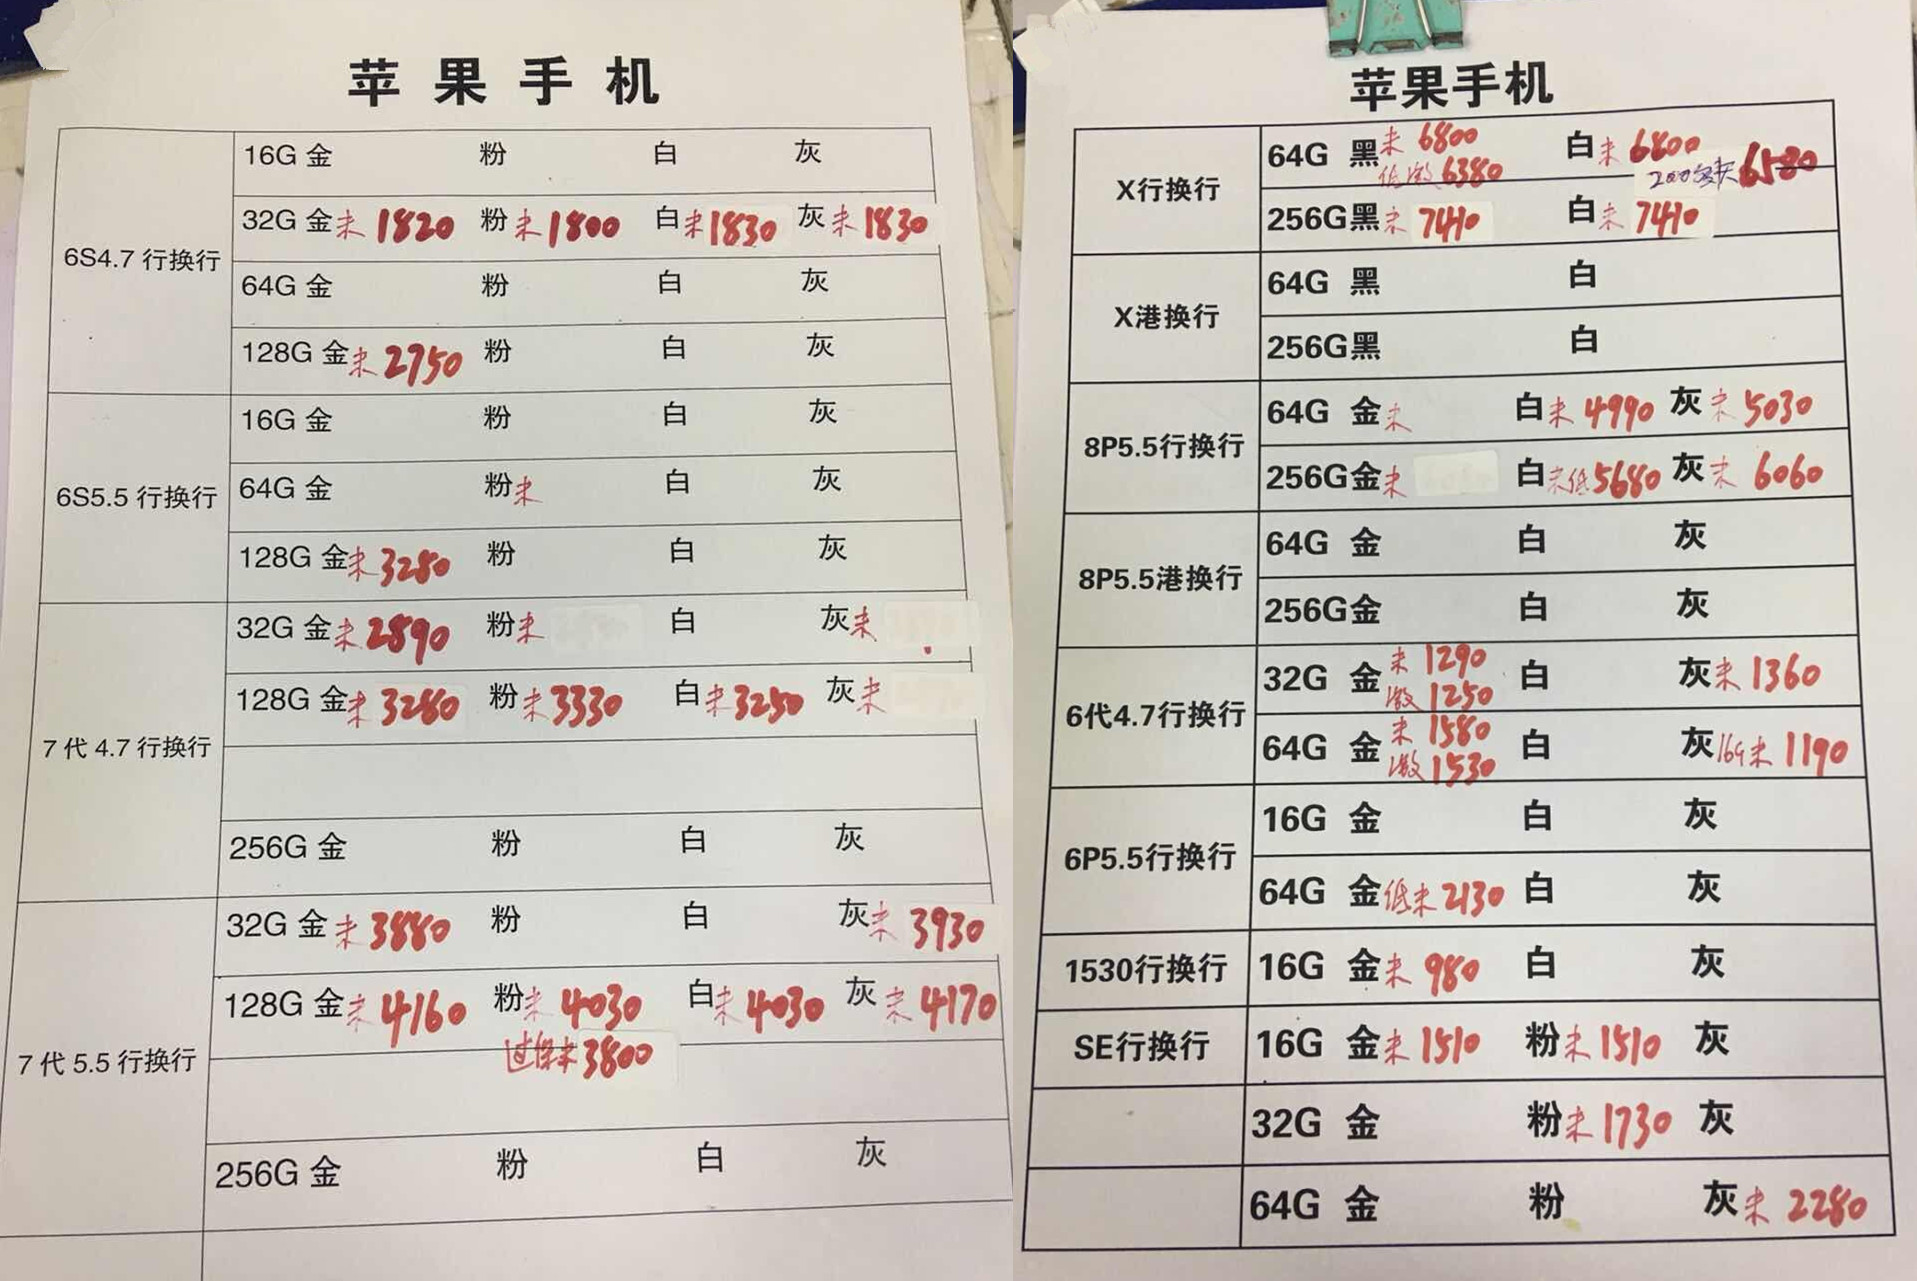 苹果手机
6S4.7行换行
16G 金 粉 白 灰
32G 金未1820 粉未1800 白未1830 灰未1830
64G 金 粉 白 灰
128G 金未2750 粉 白 灰
6S5.5行换行
16G 金 粉 白 灰
64G 金 粉未 白 灰
128G 金未3280 粉 白 灰
7代4.7行换行
32G 金未2890 粉未 白 灰未
128G 金未3280 粉未3330 白未3250 灰未
256G 金 粉 白 灰
7代5.5行换行
32G 金未3880 粉 白 灰未3930
128G 金未4160 粉未4030 白未4030 灰未4170
过保未3800
256G 金 粉 白 灰
苹果手机
X行换行
64G 黑未6800 白未6800
低激6380 200多天6580
256G黑未7410 白未7410
X港换行
64G 黑 白
256G黑 白
8P5.5行换行
64G 金未 白未4990 灰未5030
256G金未 白未低5680 灰未6060
8P5.5港换行
64G 金 白 灰
256G金 白 灰
6代4.7行换行
32G 金未1290 白 灰未1360
激1250
64G 金未1580 白 灰16G未1190
激1530
6P5.5行换行
16G 金 白 灰
64G 金低未2130 白 灰
1530行换行
16G 金未980 白 灰
SE行换行
16G 金未1510 粉未1510 灰
32G 金 粉未1730 灰
64G 金 粉 灰未2280